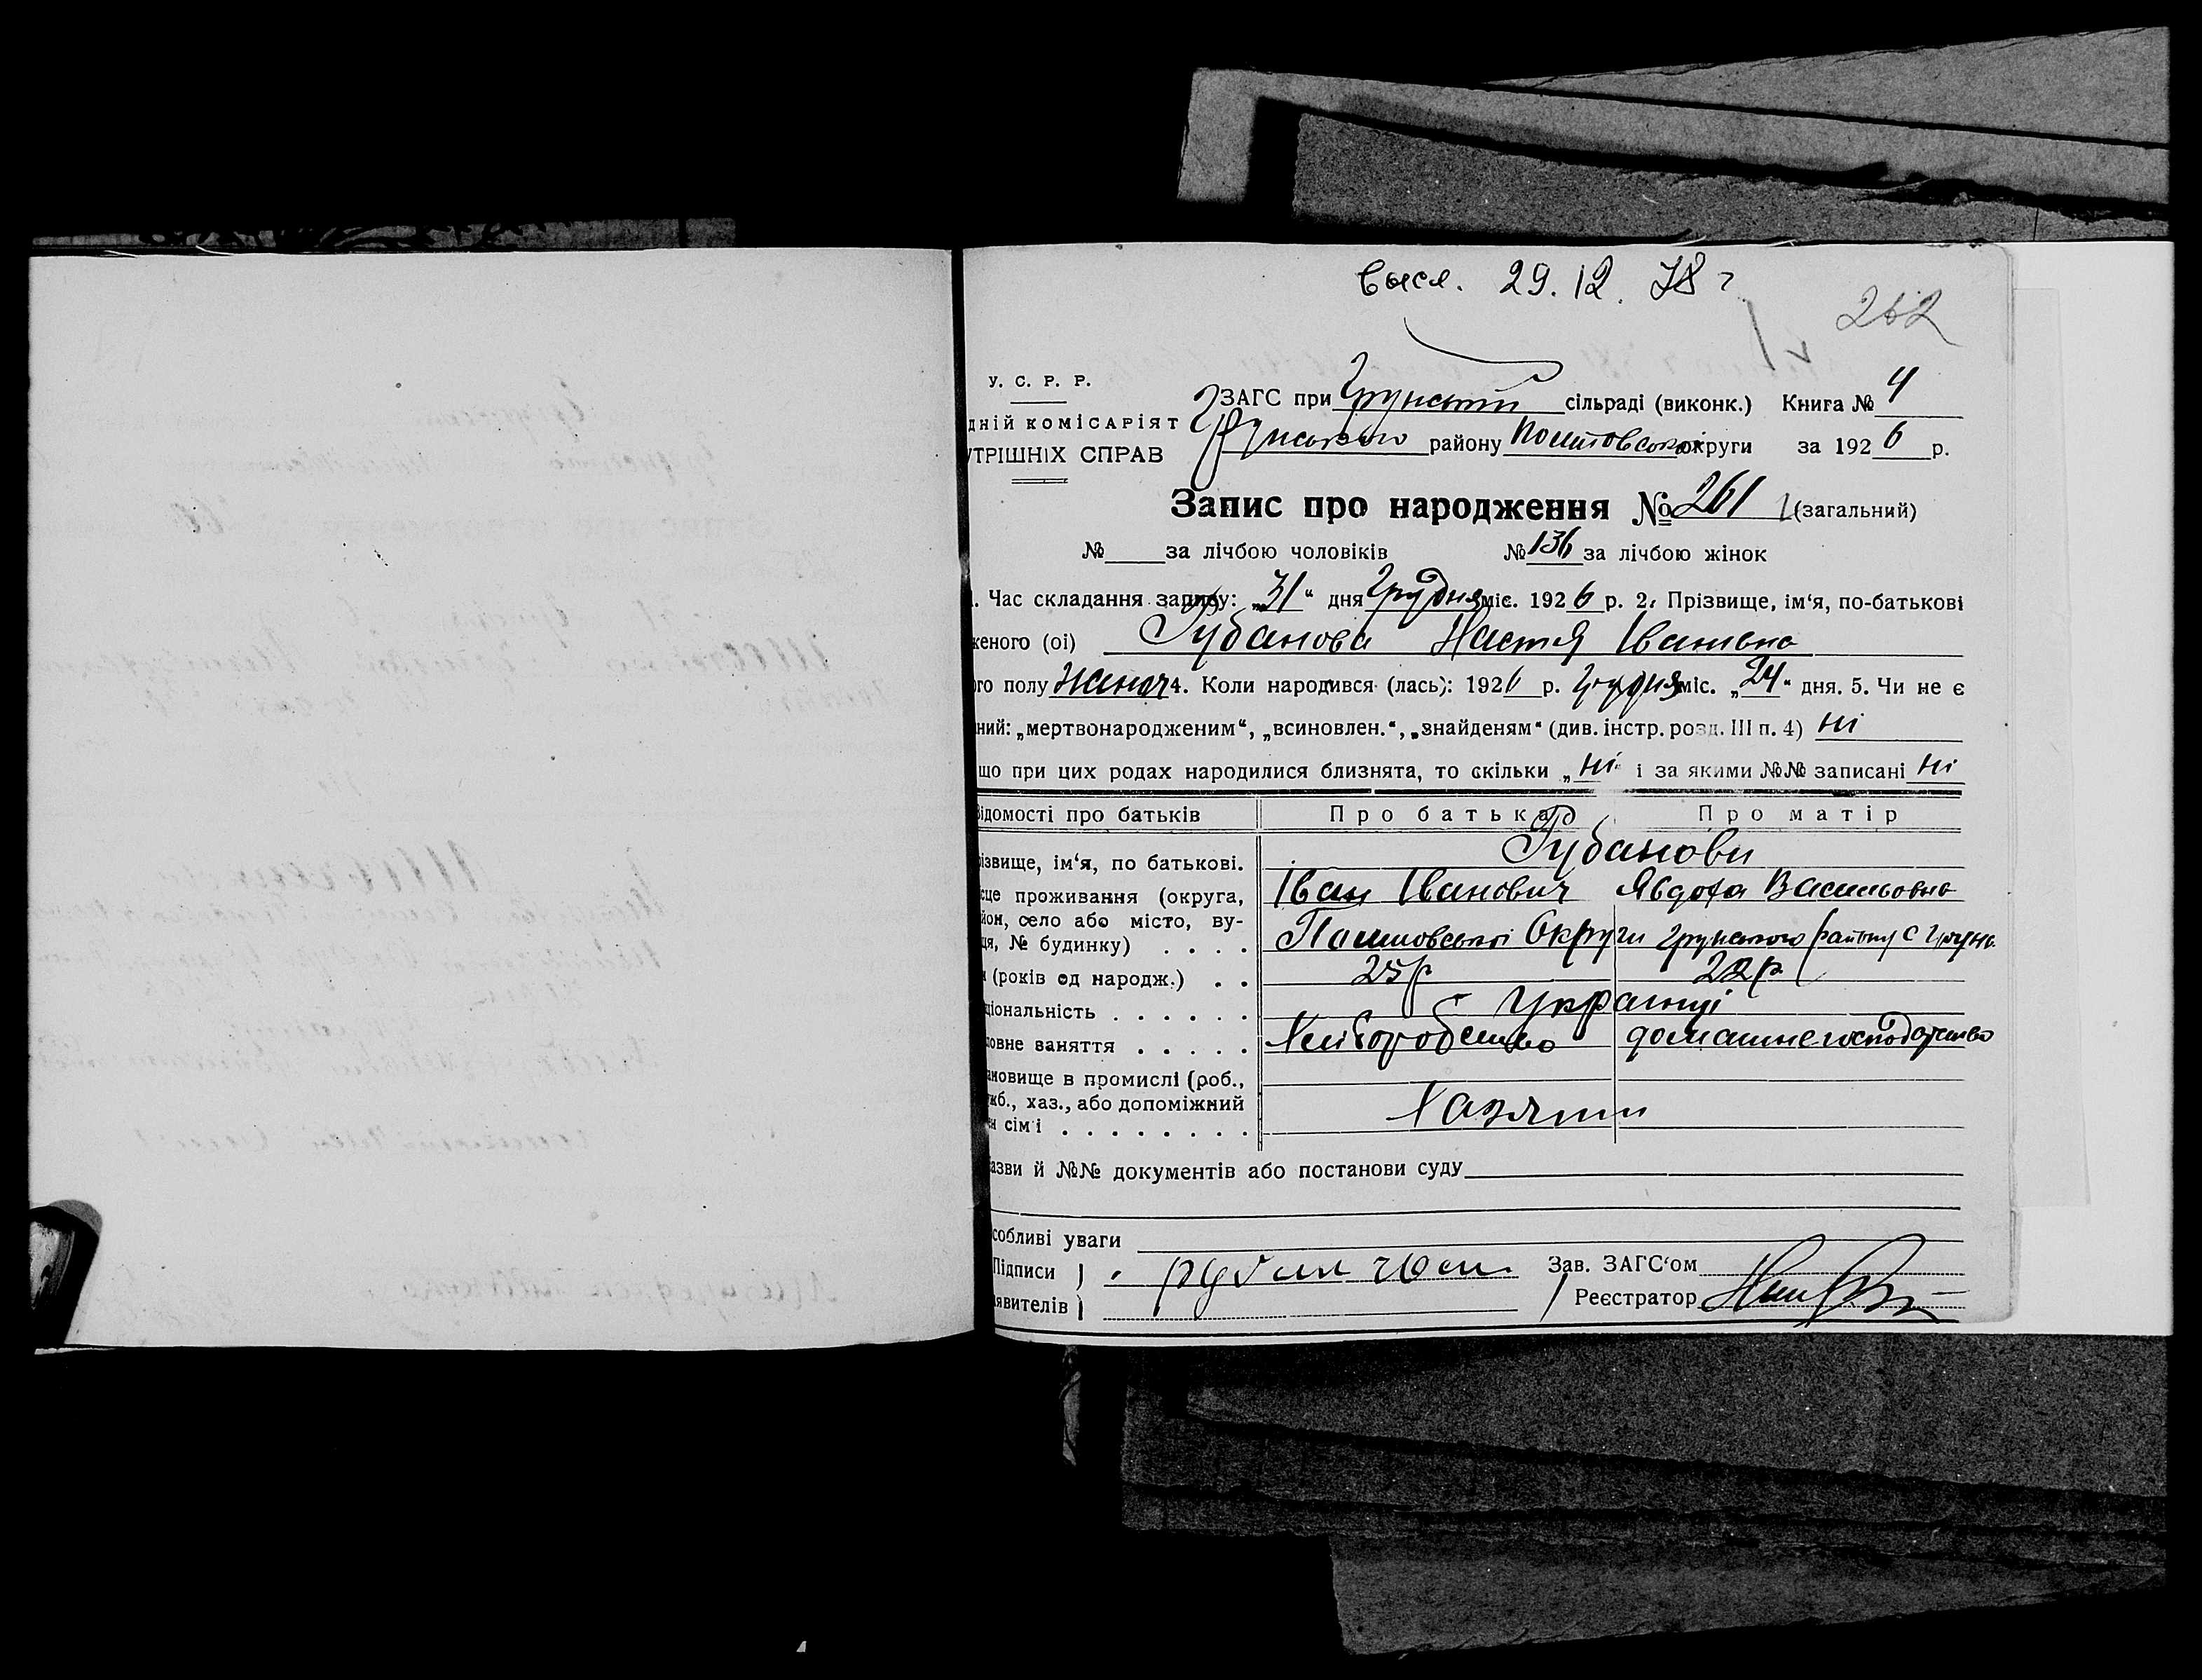 высл. 29.12.78 г
262
У. С. Р. Р.
ДНІЙ КОМІСАРІЯТ
УТРІШНІХ СПРАВ
ЗАГС при Грунській сільраді (виконк.) Книга № 4
Грунського району Полтовської округи за 1926 р.
Запис про народження № 261 (загальний)
№ за лічбою чоловіків № 136 за лічбою жінок
1. Час складання запису: „31“ дня Грудня міс. 1926 р. 2. Прізвище, ім‘я, по-батькові
женого (оі) Губанова Настя Івановна
го полу жіноч 4. Коли народився (лась): 1926 р. Грудня міс. „24“ дня. 5. Чи не є
ний: „мертвонародженим“, „всиновлен.“, „знайденям“ (див. інстр. розд. III п. 4) ні
що при цих родах народилися близнята, то скільки „ні“ і за якими №№ записані ні
ідомості про батьків Про батька Про матір
Губанови
ізвище, ім‘я, по батькові.
сце проживання (округа, Іван Іванович Явдоха Васильовна
йон, село або місто, ву-
ця, № будинку) . . . . Полтовської Округи Грунського району с Грунь
(років од народж.) . . 25 р 22 р
ціональність . . . . . . Українці
овне заняття . . . . . Хліборобство домашнє господарство
ановище в промислі (роб.,
жб., хаз., або допоміжний Хазяїни
н сім‘ї . . . . . . . .
азви й №№ документів або постанови суду
собливі уваги
Підписи Зав. ЗАГС‘ом
явителів Реєстратор